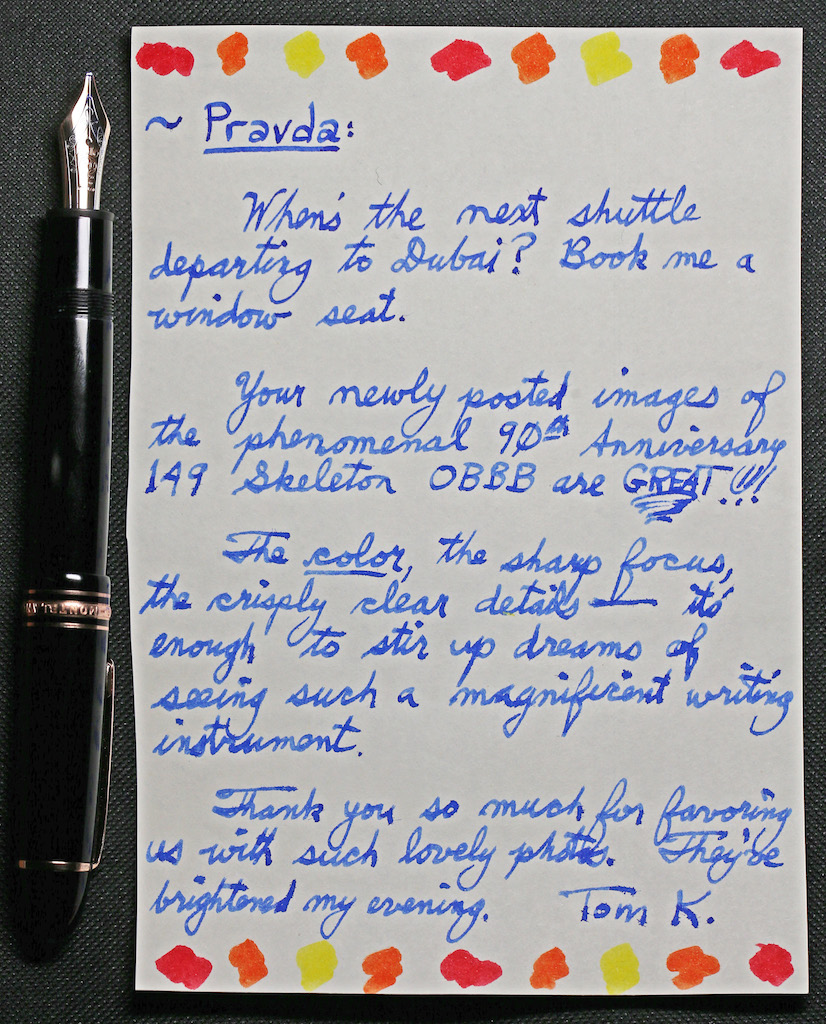 ~ Pravda:
When's the next shuttle
departing to Dubai? Book me a
window seat.
Your newly posted images of
the phenomenal 90th Anniversary
149 Skeleton OBBB are GREAT!!!
The color, the sharp focus,
the crisply clear details — it's
enough to stir up dreams of
seeing such a magnificent writing
instrument.
Thank you so much for favoring
us with such lovely photos. They've
brightened my evening. Tom K.